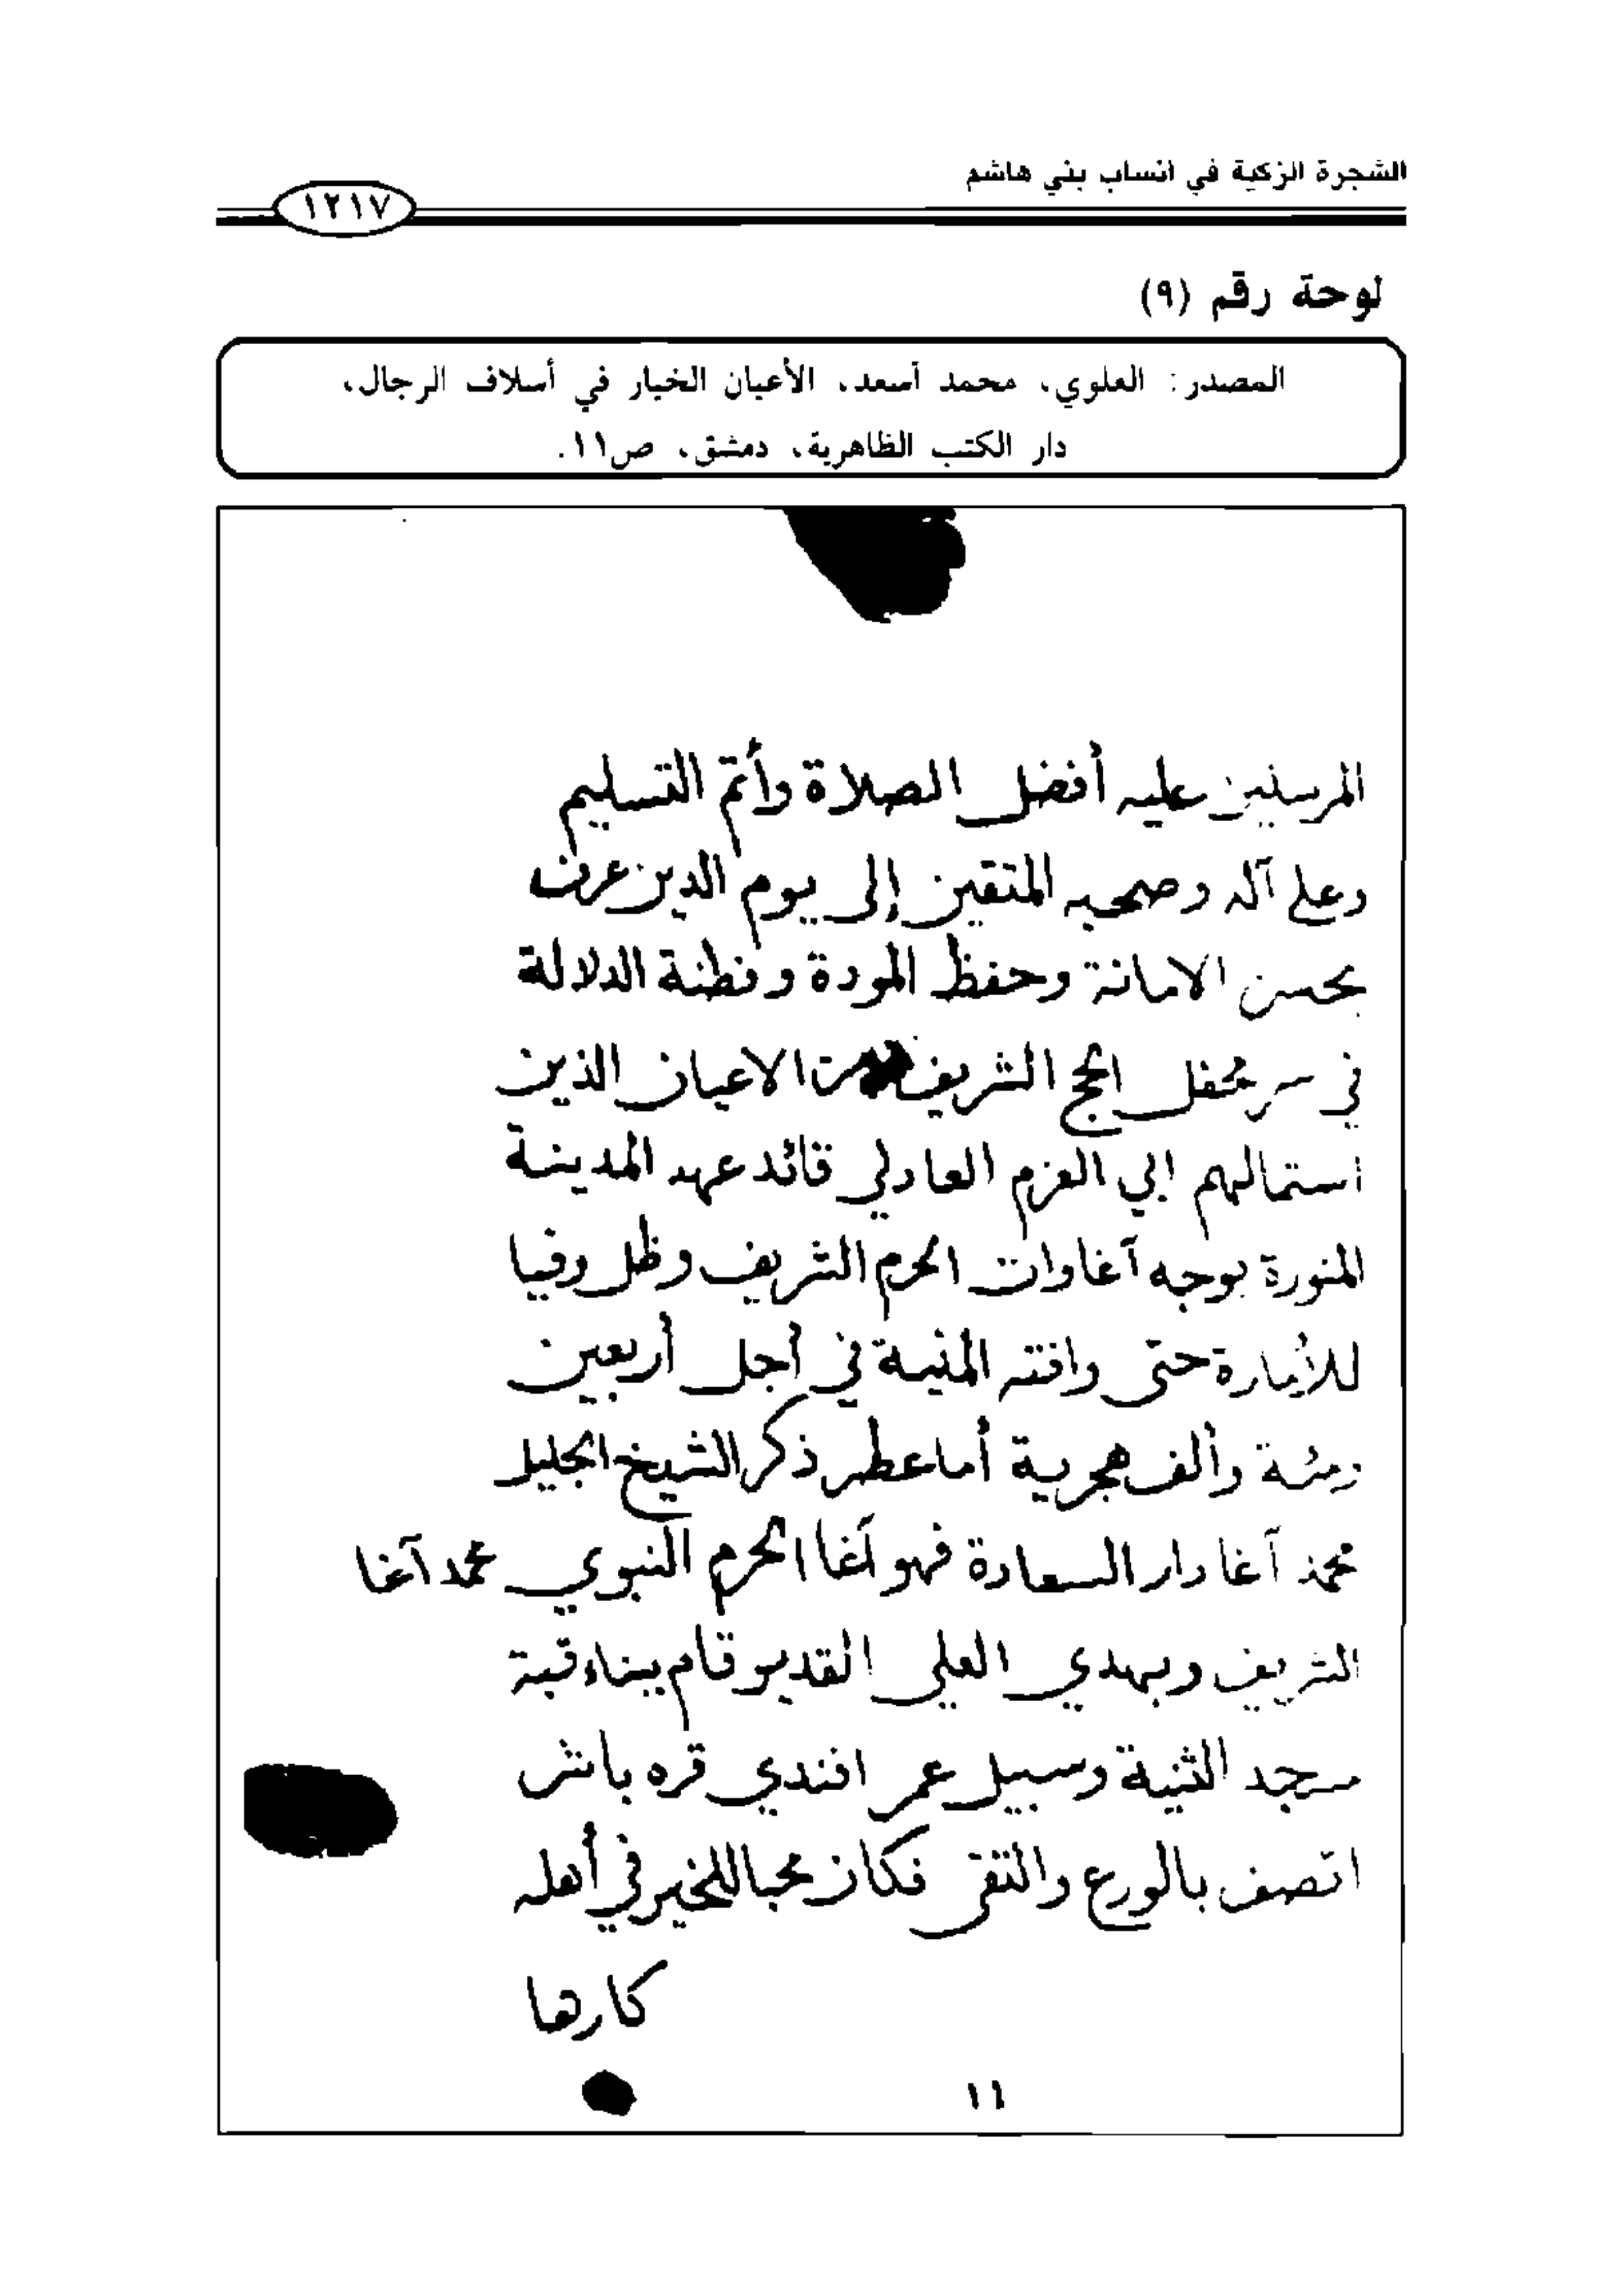 الشجرة الزكية في انساب بني هاشم
١٢١٧
لوحة رقم (٩)
المصدر: العلوي، محمد أسعد، الأعيان الخيار في أسلاف الرجال،
دار الكتب الظاهرية، دمشق، ص١١.
المرسلين عليه أفضل الصلاة وأتم التسليم
وعلى آله وصحبه المتقين إلى يوم الدين عرف
بحسن الامانة وحفظ المودة وفطنة الدلالة
في سر محفل الحج الشريف من الاعيان الذين
استمالهم ابي العزم العادلي قائد عهد المدينة
المنورة بوجه آغاوات الحرم الشريف وظل وفيا
للأمارة حتى وافته المنية في أجل أربعين
ومئة وألف هجرية أما عطر ذكر الشيخ الجليل
محمد آغا دار السعادة فهو آغا الحرم النبوي محمد آغا
الشريف وبهدي العلي القدير قام ببناء قبة
مسجد الثنية وسبيل عمر افندي قره باش
اتصف بالورع والتقى فكان محبا للخير في أهله
كارها
١١